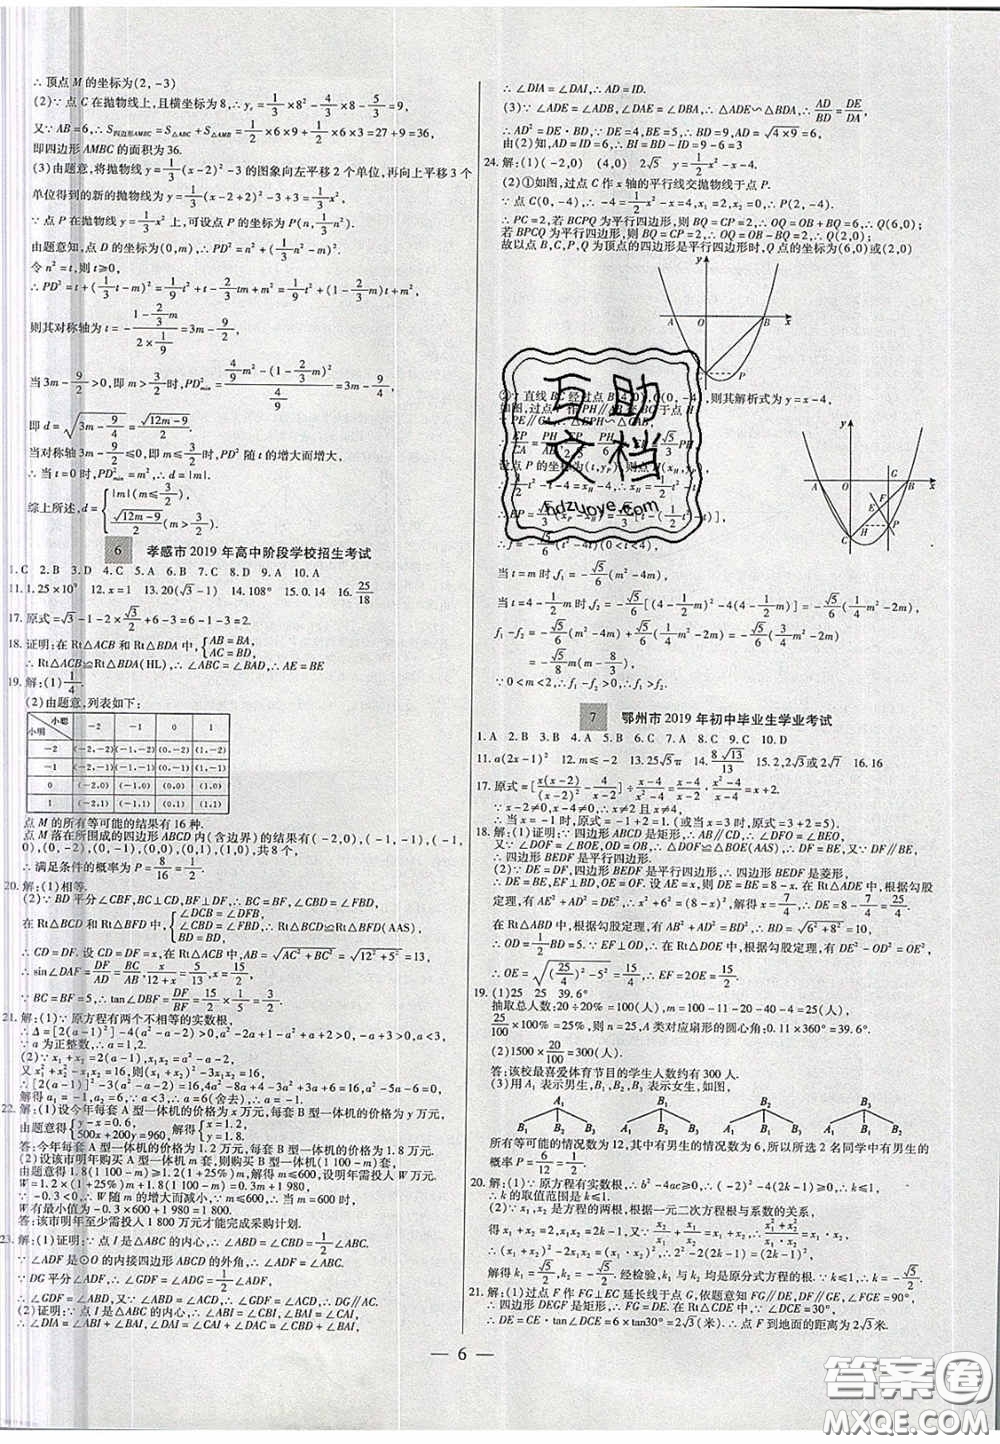 ∴ 顶点 M 的坐标为(2, -3)
(2)∵ 点 C 在抛物线上,且横坐标为 8,∴ y_c = 1/3 ×8² - 4/3 ×8 - 5/3 = 9,
又∵ AB = 6,∴ S四边形AMBC = S△ABC + S△AMB = 1/2 ×6×9 + 1/2 ×6×3 = 27 + 9 = 36,
即四边形 AMBC 的面积为 36.
(3)由题意,将抛物线 y = 1/3 (x-2)² - 3 的图象向左平移 2 个单位,再向上平移 3 个
单位得到的新的抛物线为 y = 1/3 (x-2+2)² - 3 + 3 = 1/3 x².
∵ 点 P 在抛物线 y = 1/3 x² 上,可设点 P 的坐标为 P(n, 1/3 n²),
由题意知,点 D 的坐标为(0,m),∴ PD² = n² + (1/3 n² - m)².
令 n² = t,则 t≥0,
∴ PD² = t + (1/3 t - m)² = 1/9 t² + t - 2/3 mt + m² = 1/9 t² + (1 - 2/3 m)t + m²,
则其对称轴为 t = - (1 - 2/3 m)/(2× 1/9) = 3m - 9/2,
当 3m - 9/2 >0,即 m > 3/2 时,PD²min = (4/9 m² - (1 - 2/3 m)²)/(4/9),
即 d = √(3m - 9/4) = √(12m-9)/2.
当对称轴为 3m - 9/2 ≤0,即 m≤ 3/2 时,PD² 随 t 的增大而增大,
∴ 当 t = 0 时,PD²min = m²,∴ d = |m|(m≤ 3/2).
综上所述,d = { |m|(m≤ 3/2), √(12m-9)/2 (m> 3/2).
6 孝感市 2019 年高中阶段学校招生考试
1. C 2. B 3. D 4. C 5. A 6. B 7. D 8. C 9. A 10. C
11. 1.25×10⁹ 12. x = 1 13. 20(√3 - 1) 14. 108° 15. 0.14 16. 25/18
17. 原式 = √3 - 1 - 2× √3/2 + 6 - 3 = 6 - 1 - 3 = 2.
18. 证明:在 Rt△ACB 和 Rt△BDA 中, { AB = BA, AC = BD,
∴ Rt△ACB≌Rt△BDA(HL),∴ ∠ABC = ∠BAD,∴ AE = BE
19. 解:(1) 1/4.
(2)由题意,列表如下:
小聪 小明 -2 -1 0 1
-2 (-2, -2) (-1, -2) (0, -2) (1, -2)
-1 (-2, -1) (-1, -1) (0, -1) (1, -1)
0 (-2,0) (-1,0) (0,0) (1,0)
1 (-2,1) (-1,1) (0,1) (1,1)
点 M 的所有等可能的结果有 16 种.
点 M 落在所围成的四边形 ABCD 内(含边界)的结果有(-2,0),(-1, -1),(-1,
0),(0, -2),(0, -1),(0,0),(0,1),(1,0),共 8 个,
∴ 满足条件的概率为 P = 8/16 = 1/2.
20. 解:(1)相等.
(2)∵ BD 平分∠CBF,BC⊥CD,BF⊥DF,∴ BC = BF,∠CBD = ∠FBD,
在 Rt△BCD 和 Rt△BFD 中, { ∠DCB = ∠DFB, ∠CBD = ∠FBD, BD = BD, ∴ Rt△BCD≌Rt△BFD(AAS),
∴ CD = DF. 设 CD = DF = x,在 Rt△ACB 中,AB = √(AC² + BC²) = √(12² + 5²) = 13,
∴ sin∠DAF = DF/AD = BC/AB,即 x/(12+x) = 5/13,∴ x = 15/2.
∵ BC = BF = 5,∴ tan∠DBF = DF/BF = 15/2 × 1/5 = 3/2.
21. 解:(1)∵ 原方程有两个不相等的实数根,
∴ Δ = [2(a-1)²] - 4(a² - a - 2)>0,a² - 2a + 1 - a² + a + 2>0,∴ a<3.
∵ a 为正整数,∴ a = 1,2.
(2)∵ x₁ + x₂ = 2(a-1),x₁x₂ = a² - a - 2,
又 x₁² + x₂² - x₁x₂ = 16,则(x₁ + x₂)² - 3x₁x₂ = 16,
∴ [2(a-1)²] - 3(a² - a - 2) = 16,4a² - 8a + 4 - 3a² + 3a + 6 = 16,
a² - 5a - 6 = 0,∴ a = -1,a = 6(舍去),∴ a = -1.
22. 解:(1)设今年每套 A 型一体机的价格为 x 万元,每套 B 型一体机的价格为 y 万元,
由题意得 { y - x = 0.6, 500x + 200y = 960, 解得 { x = 1.2, y = 1.8.
答:今年每套 A 型一体机的价格为 1.2 万元,每套 B 型一体机的价格为 1.8 万元.
(2)设该市明年购买 A 型一体机 m 套,则购买 B 型一体机(1 100 - m)套,
由题意得 1.8(1 100 - m)≥1.2(1 + 25%)m,解得 m≤600,设明年需投入 W 万元,
W = 1.2×(1 + 25%)m + 1.8(1 100 - m) = -0.3m + 1 980,
∵ -0.3<0,∴ W 随 m 的增大而减小,∵ m≤600,∴ 当 m = 600 时,
W 有最小值为 -0.3×600 + 1 980 = 1 800.
答:该市明年至少需投入 1 800 万元才能完成采购计划.
23. 解:(1)证明:∵ 点 I 是△ABC 的内心,∴ ∠ABD = ∠CBD = 1/2 ∠ABC,
∵ ∠ADF 是⊙O 的内接四边形 ABCD 的外角,∴ ∠ADF = ∠ABC,
∵ DG 平分∠ADF,∴ ∠GDF = ∠GDA = 1/2 ∠ADF,
又∵ ∠ABD = ∠ACD,∴ ∠GDF = ∠ACD,∴ DG∥AC.
(2)证明:∵ 点 I 是△ABC 的内心,∴ ∠ABI = ∠CBI,∠BAI = ∠CAI,
∴ ∠DIA = ∠ABI + ∠BAI,∠DAI = ∠DAC + ∠CAI = ∠CBD + ∠BAI,
∴ ∠DIA = ∠DAI,∴ AD = ID.
(3)∵ ∠ADE = ∠BDA,∠DAE = ∠DBA,∴ △ADE∽△BDA,∴ AD/BD = DE/DA,
∴ AD² = DE·BD,∵ DE = 4,BE = 5,∴ BD = 9,∴ AD = √(4×9) = 6,
由(2)知,AD = ID,∴ BI = BD - ID = 9 - 6 = 3
24. 解:(1)(-2,0) (4,0) 2√5 y = 1/2 x² - x - 4
(2)①如图,过点 C 作 x 轴的平行线交抛物线于点 P.
∵ 点 C(0, -4),∴ -4 = 1/2 x² - x - 4,x₁ = 2,x₂ = 0,∴ P(2, -4).
∴ PC = 2,若 BCPQ 为平行四边形,则 BQ = CP = 2,∴ OQ = OB + BQ = 6,∴ Q(6,0);
若 BPCQ 为平行四边形,则 BQ = CP = 2,∴ OQ = OB - BQ = 2,∴ Q(2,0).
故以点 B,C,P,Q 为顶点的四边形是平行四边形时,Q 点的坐标为(6,0)或(2,0)
y A O B x C P
则其解析式为 y = x - 4,
y G A O B x F E C H P
当 t = m 时 f₁ = - √5/6 (m² - 4m),
当 t = 4 - m 时 f₂ = - √5/6 [(4 - 1/4 m)² - 4(4 - 1/4 m)] = - √5/6 (1/4 m² - 2m),
f₁ - f₂ = - √5/6 (m² - 4m) + √5/6 (1/4 m² - 2m)
= - √5/8 m(m - 8/3),
∵ 0<m<2,∴ f₁ - f₂>0,∴ f₁>f₂.
7 鄂州市 2019 年初中毕业生学业考试
1. A 2. B 3. B 4. A 5. A 6. D 7. C 8. C 9. C 10. D
11. a(2x-1)² 12. m≤-2 13. 25√5π 14. 8√13/13 15. 2,2√3或2√7 16. 16
17. 原式 = [x(x-2)/(x-2)² - 4/(x-2)] ÷ (x-4)/(x²-4) = (x-4)/(x-2) · (x²-4)/(x-4) = x + 2.
∵ x - 2≠0,x - 4≠0,∴ x≠2 且 x≠4,
∴ 当 x = -1 时,原式 = -1 + 2 = 1(或当 x = 3 时,原式 = 3 + 2 = 5).
18. 解:(1)证明:∵ 四边形 ABCD 是矩形,∴ AB∥CD,∴ ∠DFO = ∠BEO,
又∵ ∠DOF = ∠BOE,OD = OB,∴ △DOF≌△BOE(AAS),∴ DF = BE,
∴ 四边形 BEDF 是平行四边形.
(2)∵ DE = DF,四边形 BEDF 是平行四边形,∴ 四边形 BEDF 是菱形,
∴ DE = BE,EF⊥BD,OE = OF. 设 AE = x,则 DE = BE = 8 - x,在 Rt△ADE 中,根据勾股
定理,有 AE² + AD² = DE²,∴ x² + 6² = (8-x)²,解得 x = 7/4,∴ DE = 8 - 7/4 = 25/4,
在 Rt△ABD 中,根据勾股定理,有 AB² + AD² = BD²,∴ BD = √(6² + 8²) = 10,
∴ OD = 1/2 BD = 5,∵ EF⊥OD,在 Rt△DOE 中,根据勾股定理,有 DE² - OD² = OE²,
∴ OE = √((25/4)² - 5²) = 15/4,∴ EF = 2OE = 15/2.
19. (1)25 25 39.6°
抽取总人数:20÷20% = 100(人),m = 100 - 11 - 20 - 40 - 4 = 25,
25/100 ×100% = 25%,则 n = 25,A 类对应扇形的圆心角:0.11×360° = 39.6°.
(2)1500× 20/100 = 300(人).
答:该校最喜爱体育节目的学生人数约有 300 人.
(3)用 A₁ 表示男生,B₁,B₂,B₃ 表示女生,如图,
A₁ B₁ B₂ B₃
B₁ B₂ B₃ A₁ B₂ B₃ A₁ B₁ B₃ A₁ B₁ B₂
所有等可能的情况数为 12,其中有男生的情况数为 6,所以所选 2 名同学中有男生的
概率 P = 6/12 = 1/2.
20. 解:(1)∵ 原方程有实数根,∴ b² - 4ac≥0,∴ (-2)² - 4(2k-1)≥0,∴ k≤1,
∴ k 的取值范围是 k≤1.
(2)∵ x₁,x₂ 是方程的两根,根据一元二次方程根与系数的关系,
∴ (x₁² + x₂²) - 2x₁x₂ = (x₁·x₂)²,∴ 2² - 2(2k-1) = (2k-1)²,
解得 k₁ = √5/2,k₂ = - √5/2. 经检验,k₁ 与 k₂ 均是原分式方程的根. ∵ k≤1,∴ k = - √5/2.
21. 解:(1)过点 F 作 FG⊥EC 延长线于点 G,依题意知 FG∥DE,DF∥GE,∠FGE = 90°,
∴ 四边形 DEGF 是矩形,∴ FG = DE. 在 Rt△CDE 中∵ ∠DCE = 30°,
∴ DE = CE·tan∠DCE = 6×tan30° = 2√3(米),∴ 点 F 到地面的距离为 2√3米.
— 6 —
互助文档
hdzuoye.com
答案圈
MXQE.COM